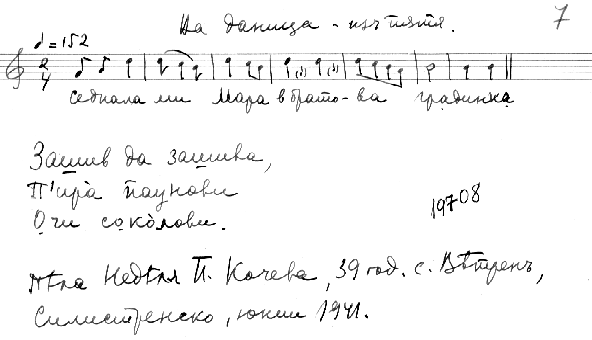 На даница - изъ пѫтя. 7
♩ = 152
2/4
Седнала ми Мара в брато-ва градинка
Зашив да зашива,
П'ира̀ паунови
Очи соко̀лови.
19708
Пѣла Недѣля П. Кочева, 39 год. с. Вѣтренъ,
Силистренско, юни 1941.